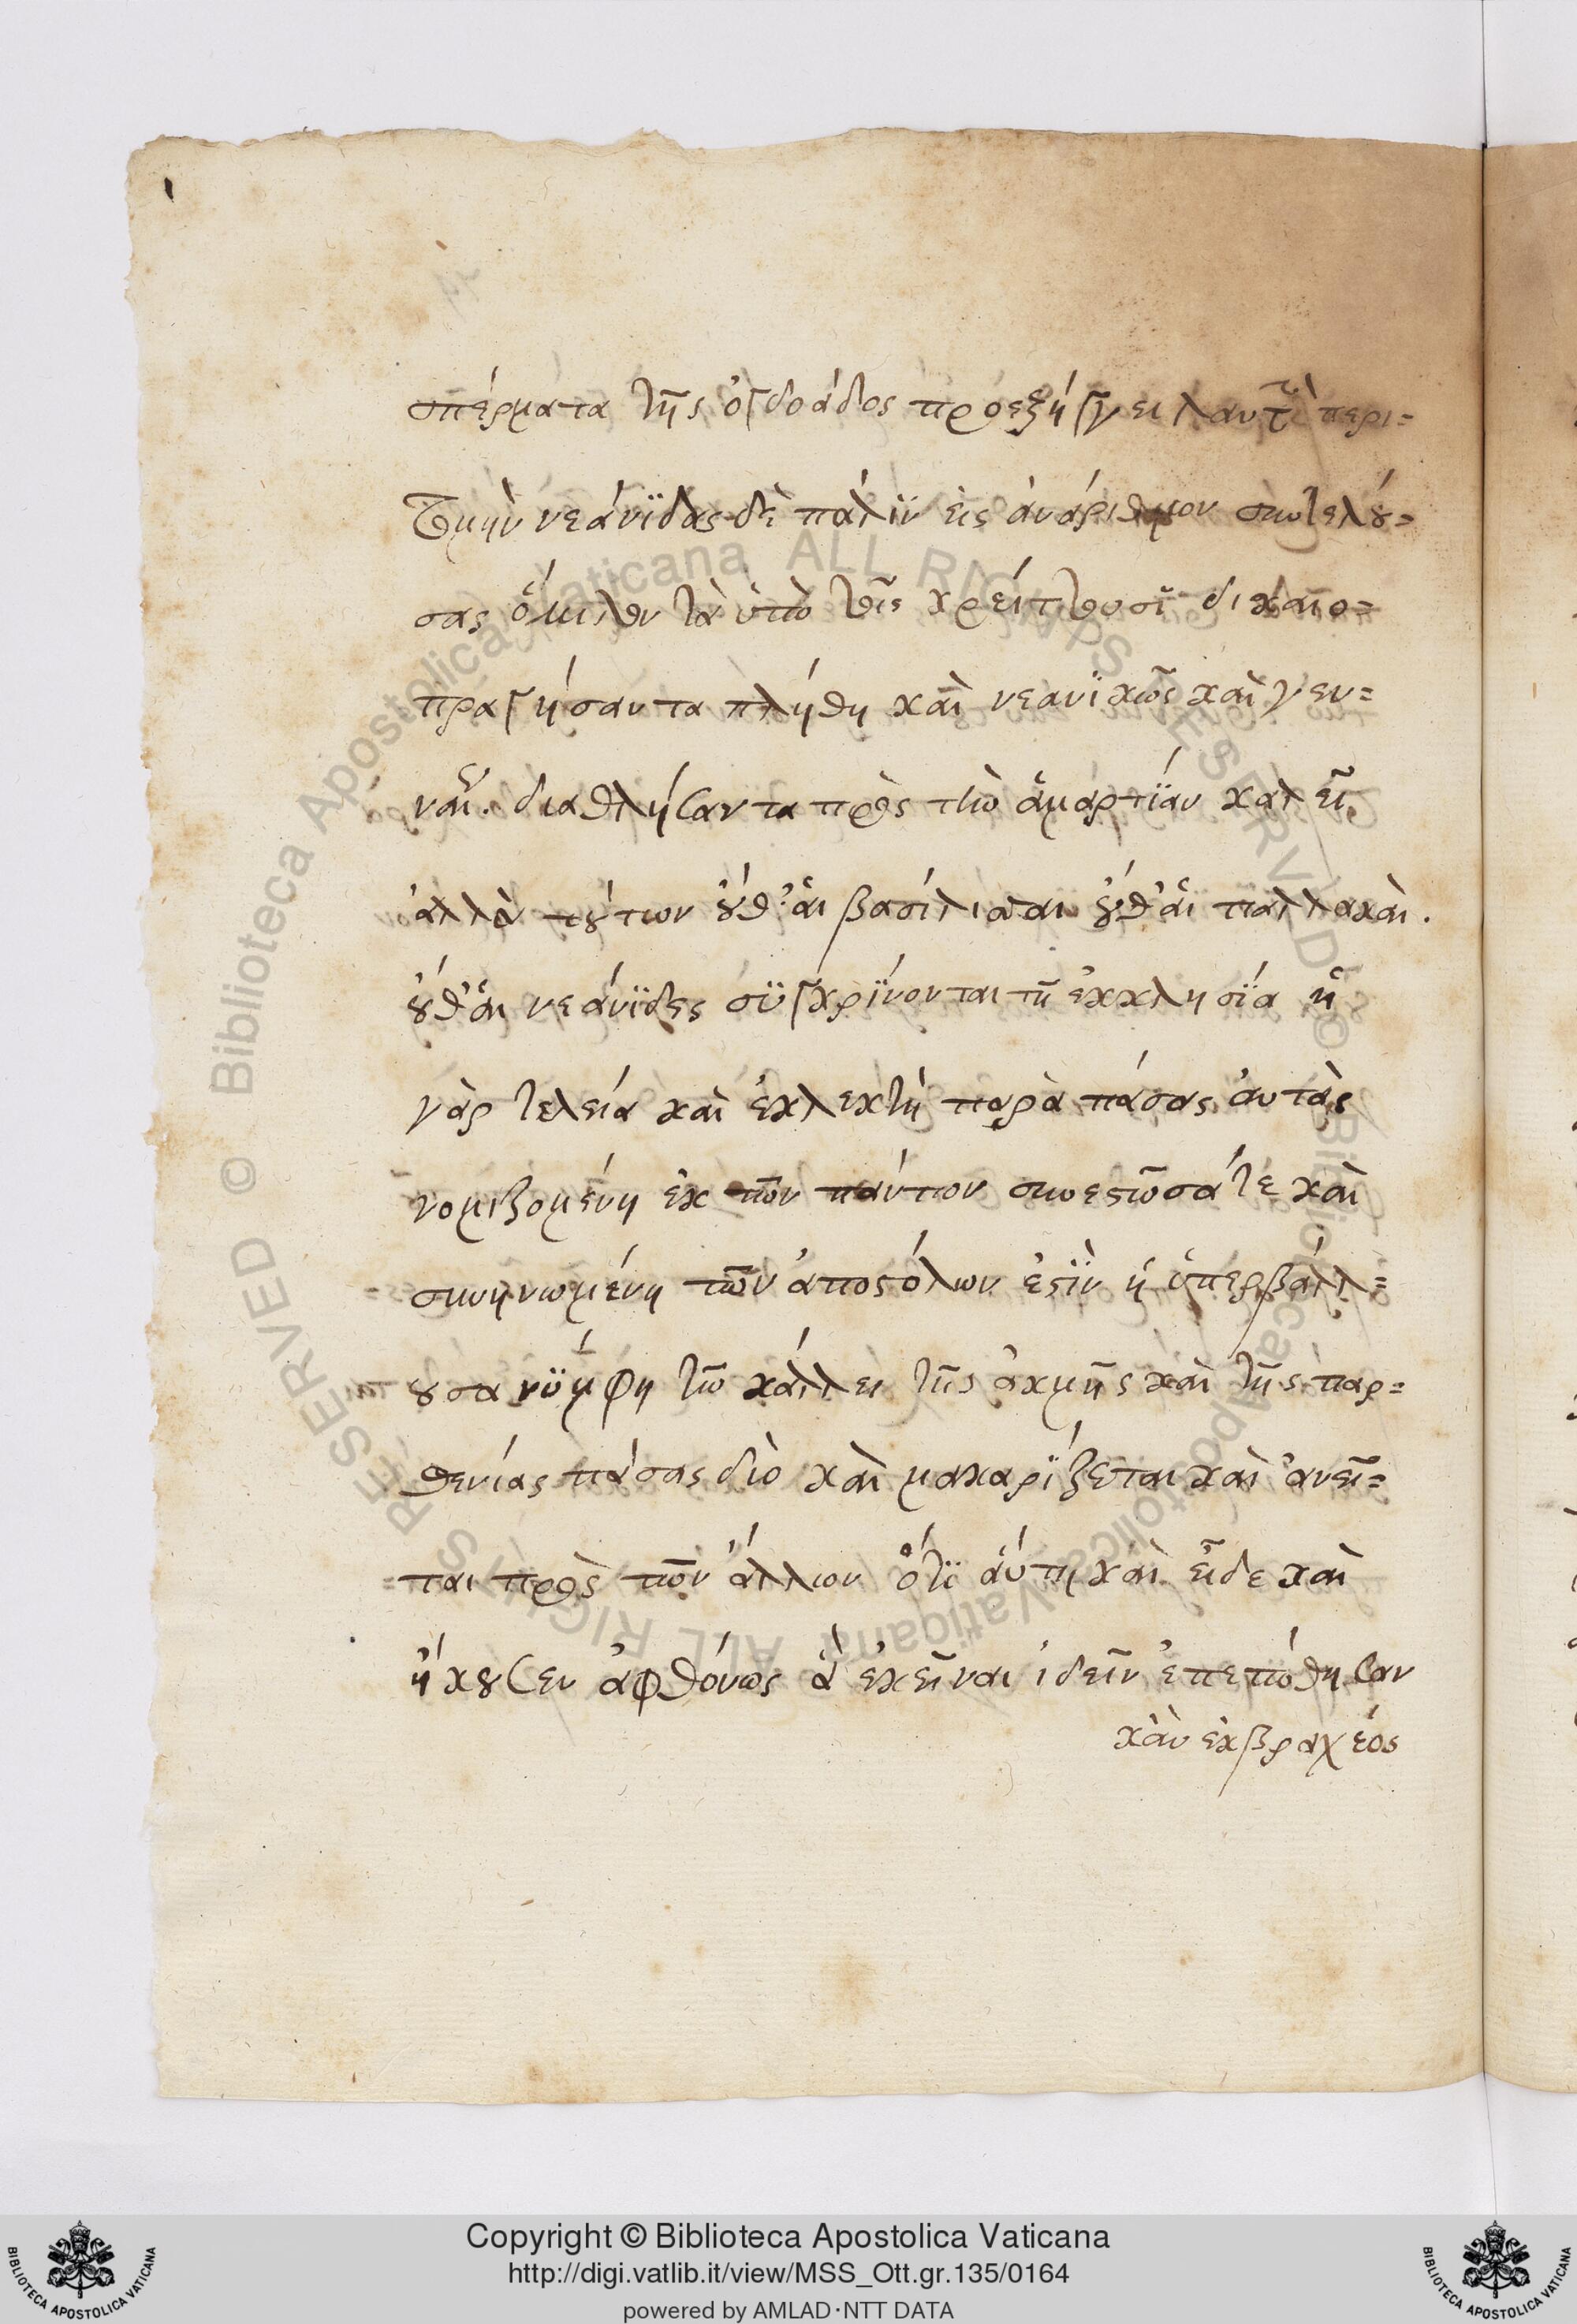 σπέρματα τῆς ὀγδοάδος προεξήγγειλ αὐτὶ περι=
τμὴν νεάνϊδας δὲ παλϊν εἰς ἀνάριθμον συντελού=
σας ὅμιλον τὰ ὑπὸ τοῖς κρείττουσϊ δικαιο=
πραγήσαντα πλήθη καὶ νεανϊκῶς καὶ γεν=
ναί. διαθλήσαντα πρὸς τὴν ἁμαρτϊάν καλεῖ
ἀλλὰ τούτων οὐθ' ἁι βασίλισσαι οὐθ' ἁϊ παλλακαὶ.
οὐθ' ἁι νεάνϊδες σϋγκρϊνονται τῇ ἐκκλησϊα ἡ
γὰρ τελεία καὶ ἐκλεκτὴ παρὰ πάσας ἀυτὰς
νομιζομένη ἐκ τῶν πάντων συνεστῶσά τε καὶ
συνηνωμένη τῶν ἀποστόλων ἐστϊν ἡ ὑπερβάλλ=
ουσα νϋμφη τῷ κάλλει τῆς ἀκμῆς καὶ τῆς παρ=
θενίας πάσας διὸ καὶ μακαρϊζεται καὶ ἀνεῖ=
ται πρὸς τῶν ἄλλων ὅτϊ ἁύτη καὶ εἶδε καὶ
ἤκουσεν ἀφθόνως ἃ ἐκεῖναι ἰδεῖν ἐπεπόθησαν
κἂν ἐκ βραχέος
Copyright © Biblioteca Apostolica Vaticana
http://digi.vatlib.it/view/MSS_Ott.gr.135/0164
powered by AMLAD·NTT DATA
BIBLIOTECA APOSTOLICA VATICANA
BIBLIOTECA APOSTOLICA VATICANA
© Biblioteca Apostolica Vaticana ALL RIGHTS RESERVED © Biblioteca Apostolica Vaticana ALL RIGHTS RESERVED